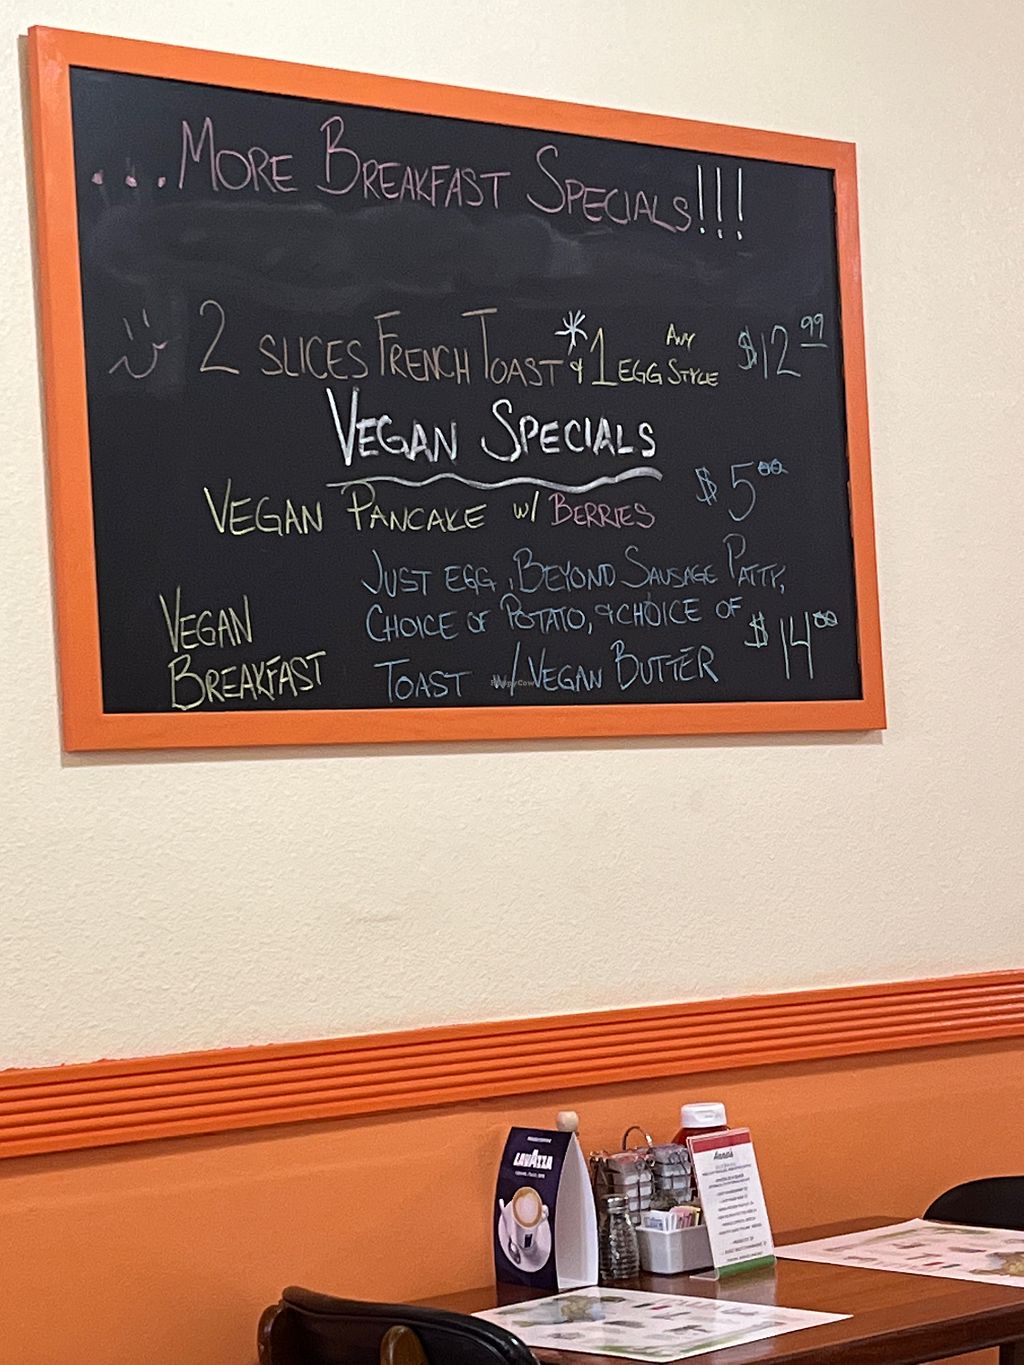 ...MORE BREAKFAST SPECIALS!!!
2 SLICES FRENCH TOAST * & 1 EGG ANY STYLE $12.99
VEGAN SPECIALS
VEGAN PANCAKE w/ BERRIES $5.00
VEGAN BREAKFAST
JUST EGG, BEYOND SAUSAGE PATTY,
CHOICE OF POTATO, & CHOICE OF
TOAST w/ VEGAN BUTTER $14.00
HappyCow
LAVAZZA